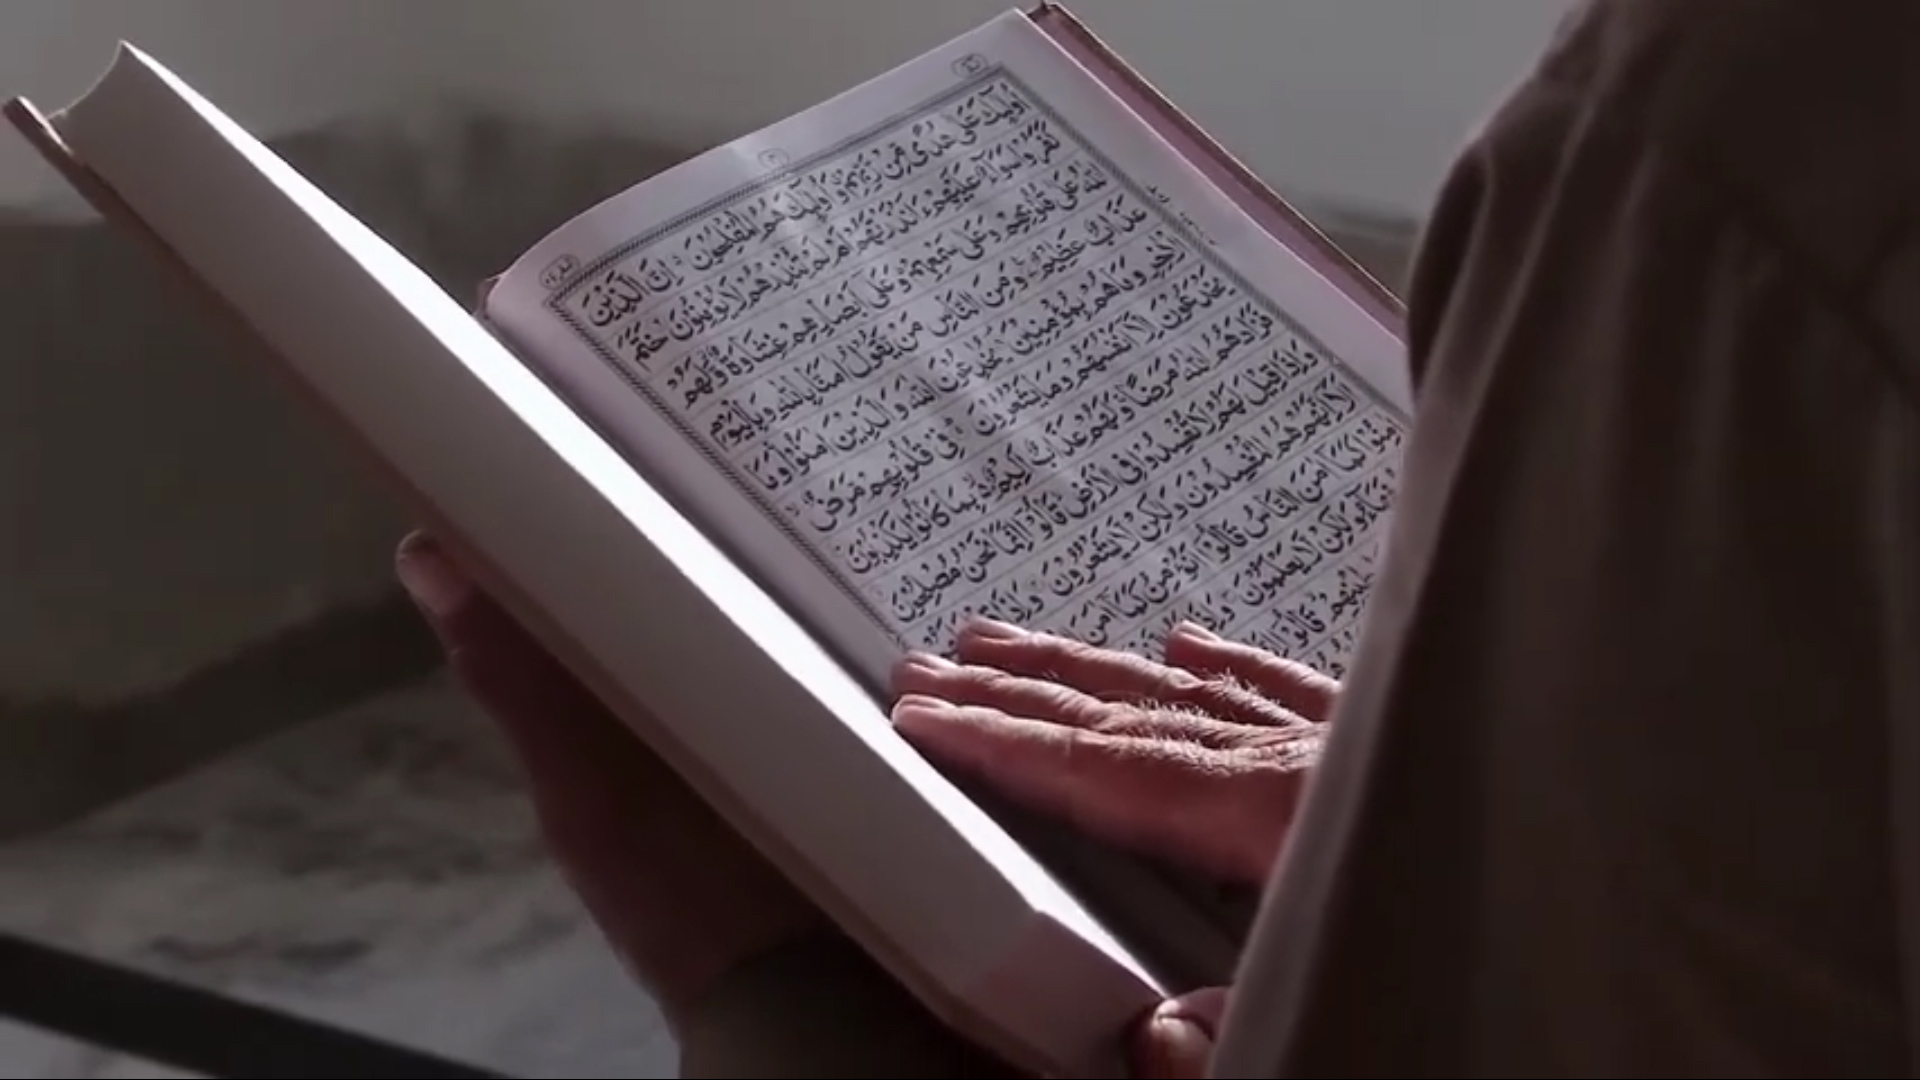 اُولٰٓئِكَ عَلٰى هُدًى مِّنْ رَّبِّهِمْ وَاُولٰٓئِكَ هُمُ الْمُفْلِحُوْنَ اِنَّ الَّذِيْنَ
كَفَرُوْا سَوَآءٌ عَلَيْهِمْ ءَاَنْذَرْتَهُمْ اَمْ لَمْ تُنْذِرْهُمْ لَا يُؤْمِنُوْنَ خَتَمَ
اللّٰهُ عَلٰى قُلُوْبِهِمْ وَعَلٰى سَمْعِهِمْ وَعَلٰٓى اَبْصَارِهِمْ غِشَاوَةٌ وَّلَهُمْ
عَذَابٌ عَظِيْمٌ وَمِنَ النَّاسِ مَنْ يَّقُوْلُ اٰمَنَّا بِاللّٰهِ وَبِالْيَوْمِ
الْاٰخِرِ وَمَا هُمْ بِمُؤْمِنِيْنَ يُخٰدِعُوْنَ اللّٰهَ وَالَّذِيْنَ اٰمَنُوْا وَمَا
يَخْدَعُوْنَ اِلَّآ اَنْفُسَهُمْ وَمَا يَشْعُرُوْنَ فِيْ قُلُوْبِهِمْ مَّرَضٌ
فَزَادَهُمُ اللّٰهُ مَرَضًا وَلَهُمْ عَذَابٌ اَلِيْمٌ بِمَا كَانُوْا يَكْذِبُوْنَ
وَاِذَا قِيْلَ لَهُمْ لَا تُفْسِدُوْا فِى الْاَرْضِ قَالُوْٓا اِنَّمَا نَحْنُ مُصْلِحُوْنَ
اَلَآ اِنَّهُمْ هُمُ الْمُفْسِدُوْنَ وَلٰكِنْ لَّا يَشْعُرُوْنَ وَاِذَا
اٰمِنُوْا كَمَآ اٰمَنَ النَّاسُ قَالُوْٓا اَنُؤْمِنُ كَمَآ اٰمَنَ
وَلٰكِنْ لَّا يَعْلَمُوْنَ
قَالُوْٓا